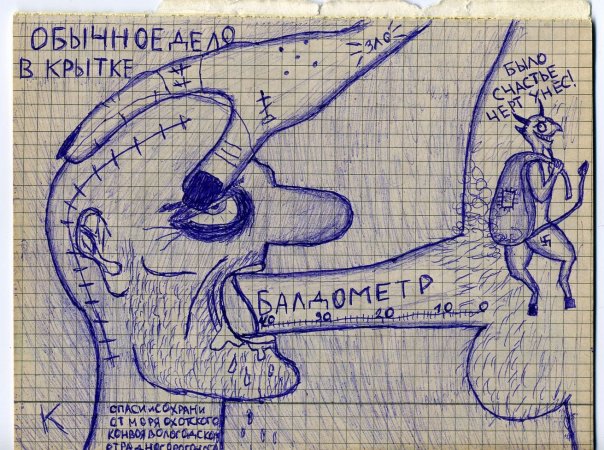 ОБЫЧНОЕ ДЕЛО
В КРЫТКЕ
ЗЛО
БЫЛО
СЧАСТЬЕ
ЧЕРТ УНЁС!
БАЛДОМЕТР
40 30 20 10 0
К
СПАСИ И СОХРАНИ
ОТ МОРЯ ОХОТСКОГО
КОНВОЯ ВОЛОГОДСКОГО